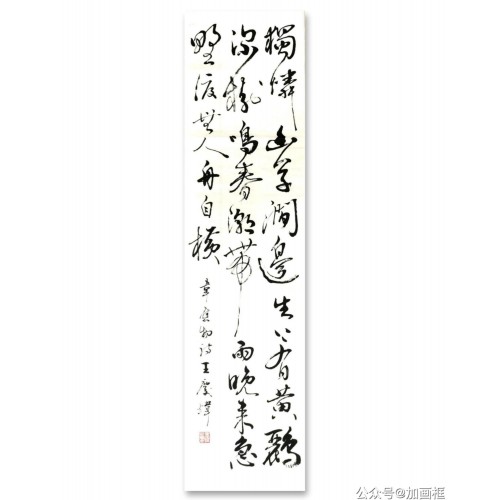 獨憐幽草澗邊生上有黃鸝
深樹鳴春潮帶雨晚來急
野渡無人舟自橫
韋應物詩王
公众号@加画框